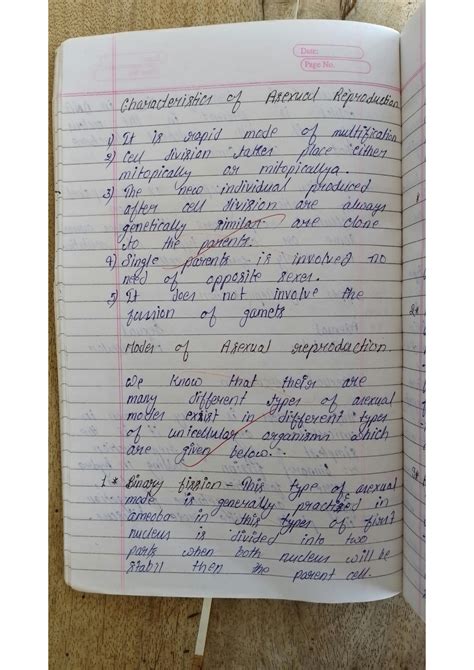 Date:
Page No.
Characteristics of Asexual Reproduction
1) It is rapid mode of multification
2) Cell division takes place either
mitopically or mitopicallya.
3) The new individual produced
after cell division are always
genetically similar are clone
to the parents.
4) Single parents is involved no
need of opposite sexes.
5) It does not involve the
fussion of gamets
Modes of Asexual reproduction.
We know that theis are
many different types of asexual
modes exist in different types
of unicellular organism which
are given below.
1 * Binary fission - This type of asexual
mode is generally practised in
amoeba in this types of first
nucleus is divided into two
parts when both nucleus will be
stabil then the parent cell.